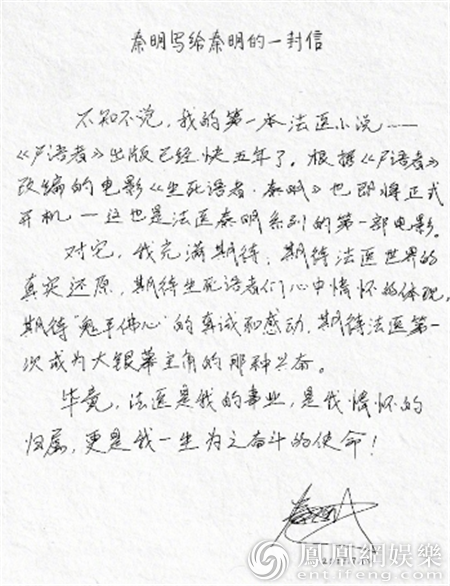 秦明写给秦明的一封信
不知不觉,我的第一本法医小说——
《尸语者》出版已经快五年了。根据《尸语者》
改编的电影《生死语者·秦明》也即将正式
开机——这也是法医秦明系列的第一部电影。
对它,我充满期待,期待法医世界的
真实还原,期待生死语者们心中情怀的体现,
期待“鬼手佛心”的真诚和感动,期待法医第一
次成为大银幕主角的那种兴奋。
毕竟,法医是我的事业,是我情怀的
归属,更是我一生为之奋斗的使命!
秦明
鳳凰網娛樂
ent.ifeng.com